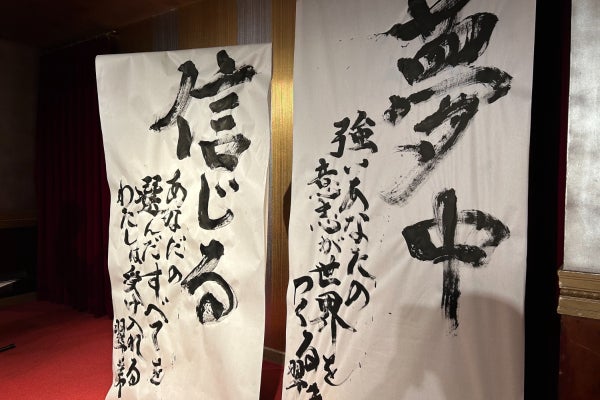 夢中
強いあなたの
意志が世界を
つくる
信じる
あなたの
選んだすべてを
わたしは受け入れる